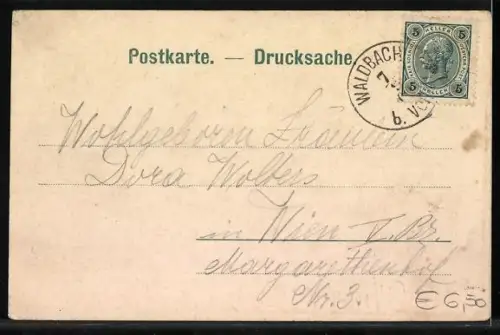 Postkarte. — Drucksache.
5 HELLER 5
5 HELLER 5
WALDBACH
b. Vo
Wohlgeboren Fräulein
Dora Wolters
in Wien V. Bz.
Margarethenhof
Nr. 3.